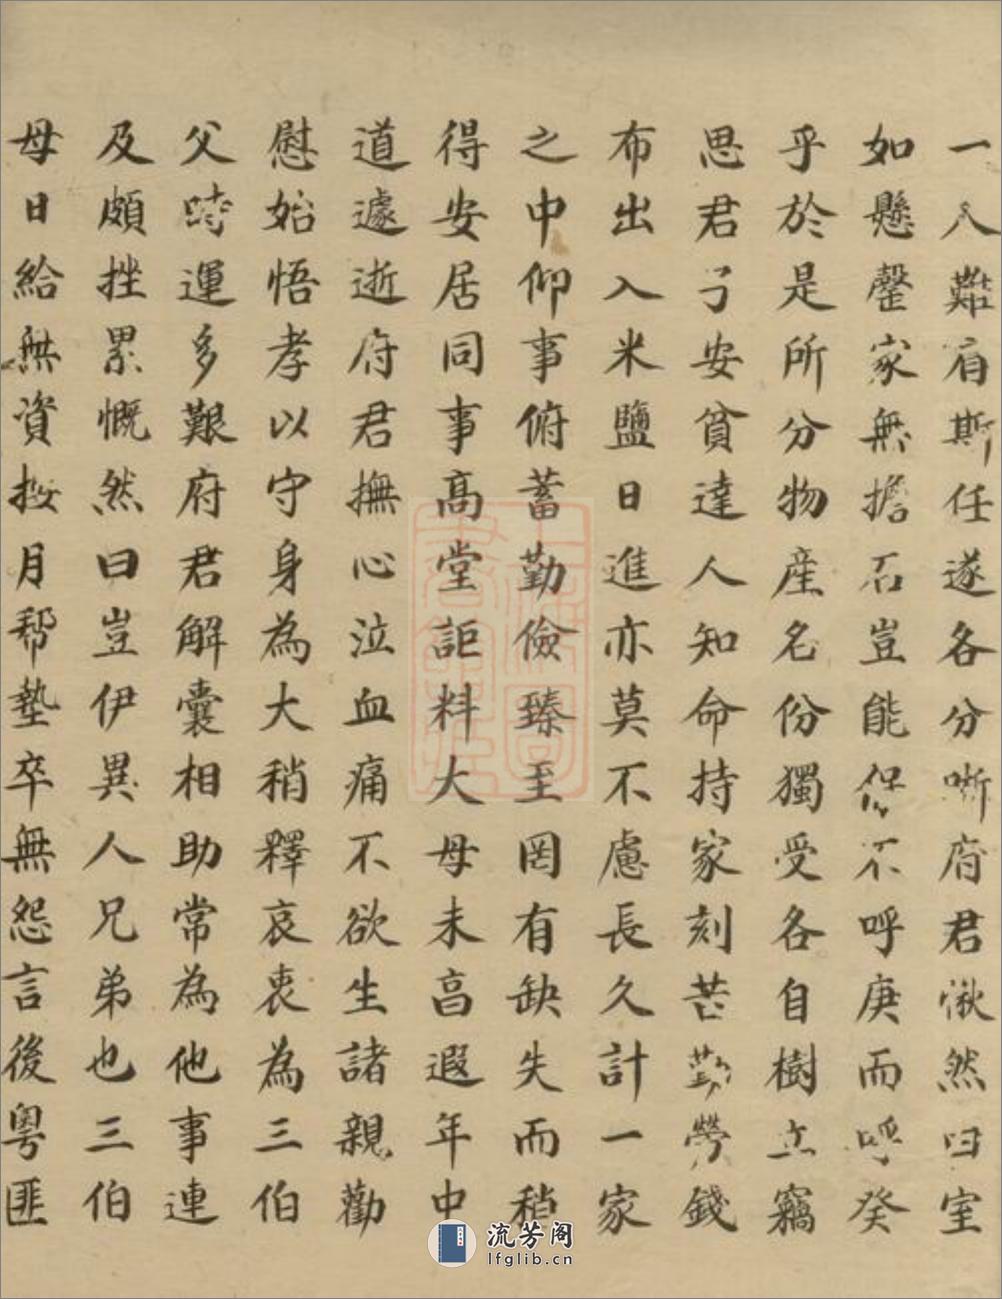 一人難肩斯任遂各分㘄府君愀然曰室
如懸罄家無擔石豈能保不呼庚而呼癸
乎於是所分物産名份獨受各自樹立竊
思君子安貧達人知命持家刻苦勤勞錢
布出入米鹽日進亦莫不慮長久計一家
之中仰事俯蓄勤儉臻至罔有缺失而稍
得安居同事高堂詎料大母未高遐年中
道遽逝府君撫心泣血痛不欲生諸親勸
慰始悟孝以守身為大稍釋哀衷為三伯
父時運多艱府君解囊相助常為他事連
及頗挫累慨然曰豈伊異人兄弟也三伯
母日給無資按月帮墊卒無怨言後粵匪
流芳阁
lfglib.cn